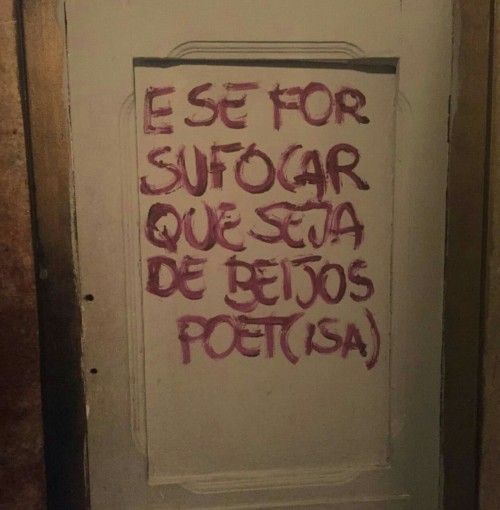 E SE FOR
SUFOCAR
QUE SEJA
DE BEIJOS
POET(ISA)